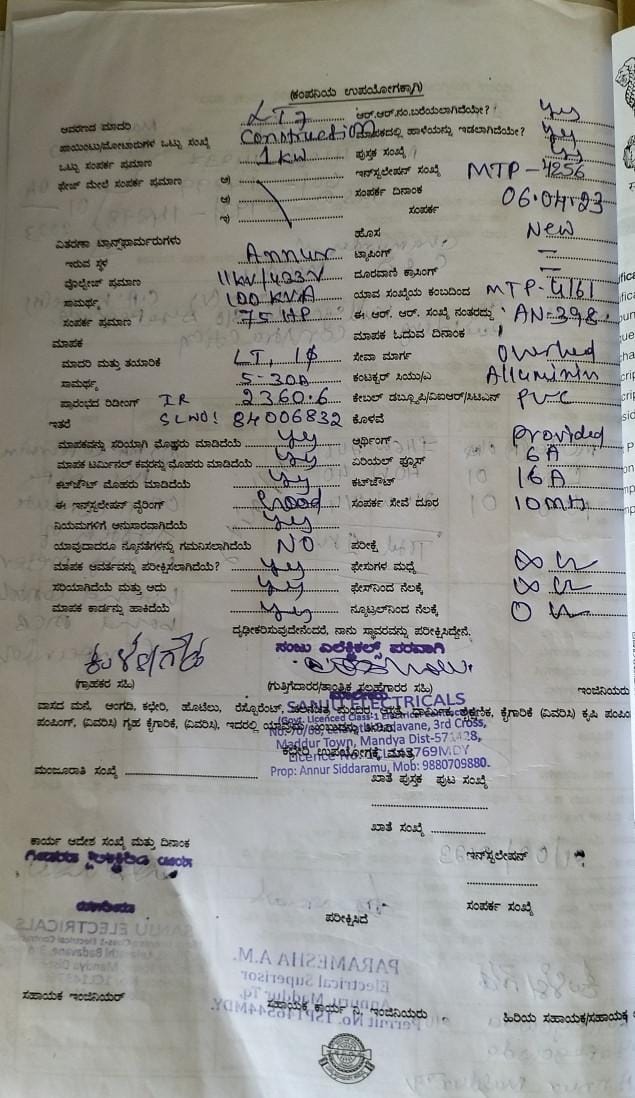 (ಕಂಪನಿಯ ಉಪಯೋಗಕ್ಕಾಗಿ)
ಆವರಣದ ಮಾದರಿ LT7 ಆರ್.ಆರ್.ನಂ.ಬರೆಯಲಾಗಿದೆಯೇ? yes
ಪಾಯಿಂಟು/ಮೋಟಾರುಗಳ ಒಟ್ಟು ಸಂಖ್ಯೆ Construction ಮಾಪಕದಲ್ಲಿ ಹಾಳೆಯನ್ನು ಇಡಲಾಗಿದೆಯೇ? yes
ಒಟ್ಟು ಸಂಪರ್ಕ ಪ್ರಮಾಣ 1 KW ಪುಸ್ತಕ ಸಂಖ್ಯೆ
ಫೇಜ್ ಮೇಲೆ ಸಂಪರ್ಕ ಪ್ರಮಾಣ ಇನ್‌ಸ್ಟಲೇಷನ್ ಸಂಖ್ಯೆ MTP-4256
ಸಂಪರ್ಕ ದಿನಾಂಕ 06.04.23
ಸಂಪರ್ಕ
ಹೊಸ New
ವಿತರಣಾ ಟ್ರಾನ್ಸ್‌ಫಾರ್ಮರುಗಳು
ಇರುವ ಸ್ಥಳ Annur ಟ್ಯಾಪಿಂಗ್ —
ವೋಲ್ಟೇಜ್ ಪ್ರಮಾಣ 11KV/433V ದೂರವಾಣಿ ಕ್ರಾಸಿಂಗ್ —
ಸಾಮರ್ಥ್ಯ 100 KVA ಯಾವ ಸಂಖ್ಯೆಯ ಕಂಬದಿಂದ MTP-4161
ಸಂಪರ್ಕ ಪ್ರಮಾಣ 75 HP ಈ ಆರ್. ಆರ್. ಸಂಖ್ಯೆ ನಂತರದ್ದು AN-398
ಮಾಪಕ ಮಾಪಕ ಓದುವ ದಿನಾಂಕ
ಮಾದರಿ ಮತ್ತು ತಯಾರಿಕೆ LT, 1ϕ ಸೇವಾ ಮಾರ್ಗ Overhed
ಸಾಮರ್ಥ್ಯ 5-30A ಕಂಟಕ್ಟರ್ ಸಿಯು/ಎ Alluminin
ಪ್ರಾರಂಭದ ರಿಡಿಂಗ್ IR 2360.6 ಕೇಬಲ್ ಡಬ್ಲ್ಯೂಪಿ/ವಿಐಆರ್/ಸಿಟಿಎಸ್ PVC
ಇತರೆ SLNO: 84006832 ಕೊಳವೆ
ಮಾಪಕವನ್ನು ಸರಿಯಾಗಿ ಮೊಹರು ಮಾಡಿದೆಯೆ yes ಅರ್ಥಿಂಗ್ Provided
ಮಾಪಕ ಟರ್ಮಿನಲ್ ಕವರನ್ನು ಮೊಹರು ಮಾಡಿದೆಯೆ yes ಏರಿಯಲ್ ಫ್ಯೂಸ್ 6 A
ಕಟ್‌ಔಟ್ ಮೊಹರು ಮಾಡಿದೆಯೆ yes ಕಟ್‌ಔಟ್ 16 A
ಈ ಇನ್ಸ್‌ಟಲೇಷನ್ ವೈರಿಂಗ್ Good ಸಂಪರ್ಕ ಸೇವೆ ದೂರ 10 Mtr
ನಿಯಮಗಳಿಗೆ ಅನುಸಾರವಾಗಿದೆಯೆ yes
ಯಾವುದಾದರೂ ನ್ಯೂನತೆಗಳನ್ನು ಗಮನಿಸಲಾಗಿದೆಯೆ NO ಪರೀಕ್ಷೆ
ಮಾಪಕ ಆವರ್ತವನ್ನು ಪರೀಕ್ಷಿಸಲಾಗಿದೆಯೆ? yes ಫೇಸುಗಳ ಮಧ್ಯೆ ∞
ಸರಿಯಾಗಿದೆಯೆ ಮತ್ತು ಅದು yes ಫೇಸ್‌ನಿಂದ ನೆಲಕ್ಕೆ ∞
ಮಾಪಕ ಕಾರ್ಡನ್ನು ಹಾಕಿದೆಯೆ yes ನ್ಯೂಟ್ರಲ್‌ನಿಂದ ನೆಲಕ್ಕೆ 0
ದೃಢೀಕರಿಸುವುದೇನೆಂದರೆ, ನಾನು ಸ್ಥಾವರವನ್ನು ಪರೀಕ್ಷಿಸಿದ್ದೇನೆ.
ಸಂಜು ಎಲೆಕ್ಟ್ರಿಕಲ್ಸ್ ಪರವಾಗಿ
(ಗ್ರಾಹಕರ ಸಹಿ) (ಗುತ್ತಿಗೆದಾರರ/ತಾಂತ್ರಿಕ ಸಲಹೆಗಾರರ ಸಹಿ) ಇಂಜಿನಿಯರು
SANJU ELECTRICALS
ವಾಸದ ಮನೆ, ಅಂಗಡಿ, ಕಛೇರಿ, ಹೋಟೆಲು, ರೆಸ್ಟೊರೆಂಟ್, ಕೈಗಾರಿಕೆ (ವಿವರಿಸಿ) ಕೃಷಿ ಪಂಪಿಂ
(Govt. Licenced Class-1
ಪಂಪಿಂಗ್, (ವಿವರಿಸಿ) ಗೃಹ ಕೈಗಾರಿಕೆ, (ವಿವರಿಸಿ), ಇದರಲ್ಲಿ
3rd Cross,
Maddur Town, Mandya Dist-571428,
ಕಛೇರಿ ಉಪಯೋಗಕ್ಕೆ ಮಾತ್ರ
Prop: Annur Siddaramu, Mob: 9880709880.
ಮಂಜೂರಾತಿ ಸಂಖ್ಯೆ ಖಾತೆ ಪುಸ್ತಕ ಪುಟ ಸಂಖ್ಯೆ
ಖಾತೆ ಸಂಖ್ಯೆ
ಕಾರ್ಯ ಆದೇಶ ಸಂಖ್ಯೆ ಮತ್ತು ದಿನಾಂಕ ಇನ್‌ಸ್ಟಲೇಷನ್
ಸಂಪರ್ಕ ಸಂಖ್ಯೆ
ಪರೀಕ್ಷಿಸಿದೆ
PARAMESHA A.M.
Electrical Superisor
Annuru, Maddur Tq.
Permit No. 1SP146544MDY.
ಸಹಾಯಕ ಇಂಜಿನಿಯರ್ ಸಹಾಯಕ ಕಾರ್ಯ ನಿ. ಇಂಜಿನಿಯರು ಹಿರಿಯ ಸಹಾಯಕ/ಸಹಾಯಕ